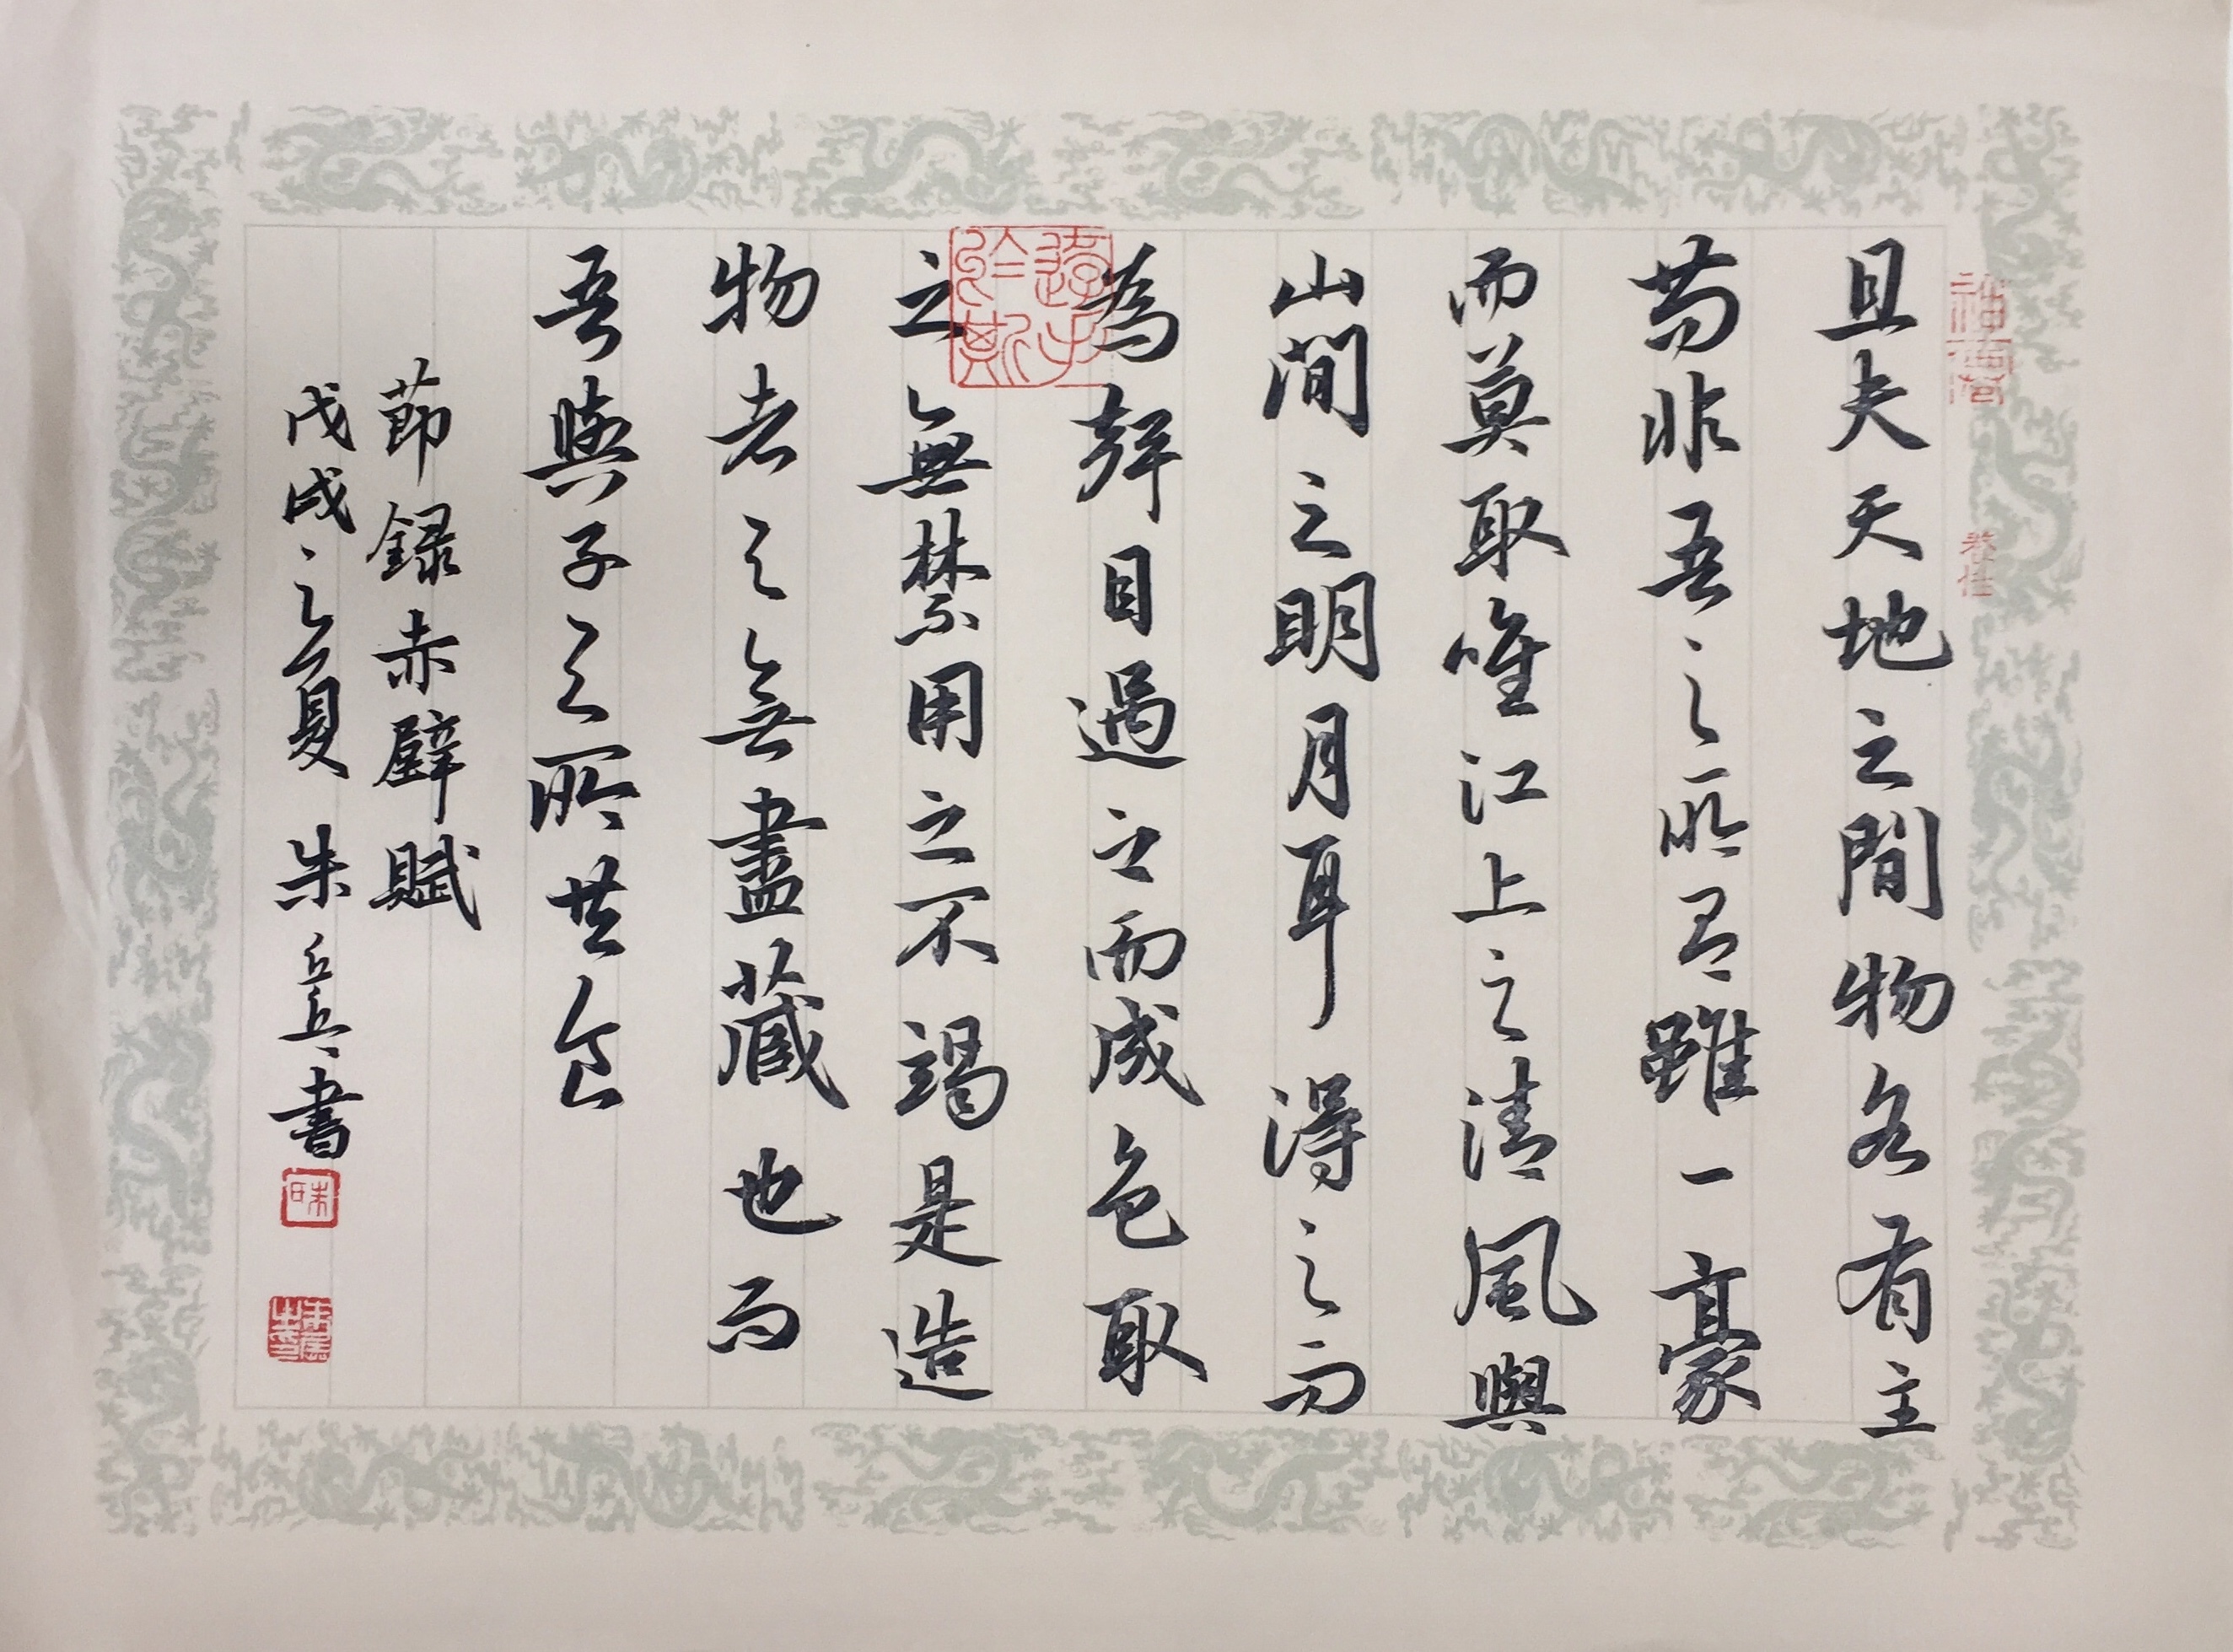 且夫天地之間物各有主
苟非吾之所有雖一豪
而莫取唯江上之清風與
山間之明月耳得之而
為聲目遇之而成色取
之無禁用之不竭是造
物者之無盡藏也而
吾與子之所共食
節錄赤壁賦
戊戌之夏 朱岳兵書